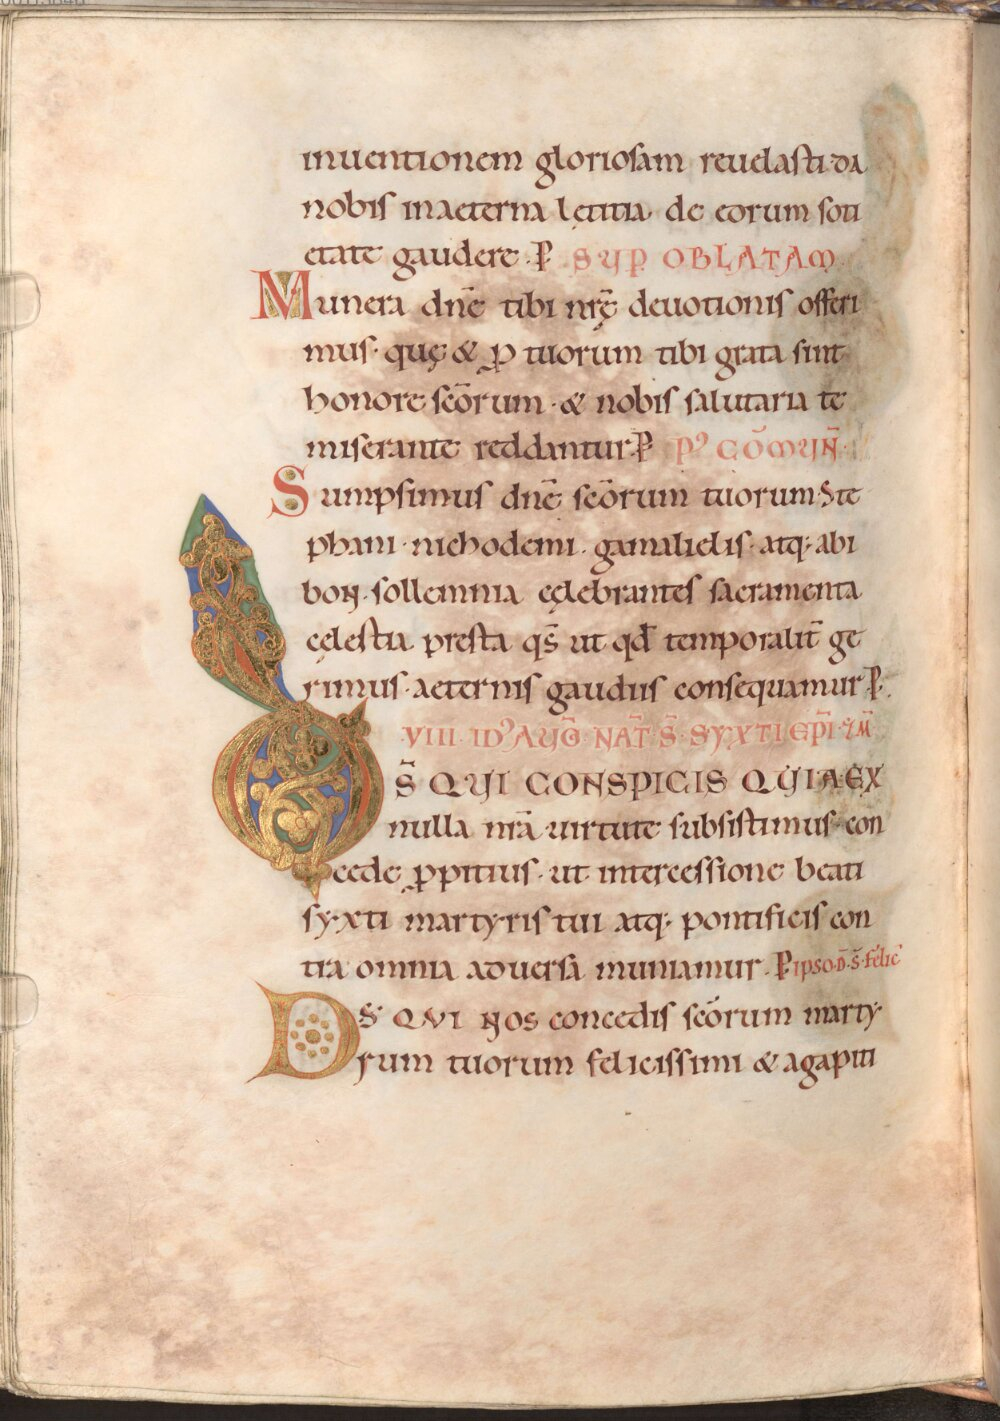 inuentionem gloriosam reuelasti· da
nobis in aeterna lętitia· de eorum soti
etate gaudere· P̄ SUP OBLATAM
Munera dn̄e tibi nr̄ę deuotionis offeri
mus· quę & ꝓ tuorum tibi grata sint
honore sc̄orum· & nobis salutaria te
miserante reddantur P̄ Pꝰ CŌMUN̄
Sumpsimus dn̄e sc̄orum tuorum Ste
phani· nichodemi· gamalielis· atq· abi
bon· sollemnia cęlebrantes sacramenta
cęlestia presta qs̄ ut qd̄ temporalit̄ ge
rimus· aeternis gaudiis consequamur P̄·
VIII· IDꝰ AUḠ· NAT̄ S̄· SYXTI EP̄I· ⁊ M̄
DS̄ QUI CONSPICIS QUIA EX
nulla nr̄a uirtute subsistimus· con
cede ꝓpitius· ut intercessione beati
syxti martyris tui atq· pontificis con
tra omnia aduersa muniamur· P̄ ipso· D̄· S̄· felic'
DS̄ QVI NOS concedis sc̄orum marty
rum tuorum felicissimi & agapiti